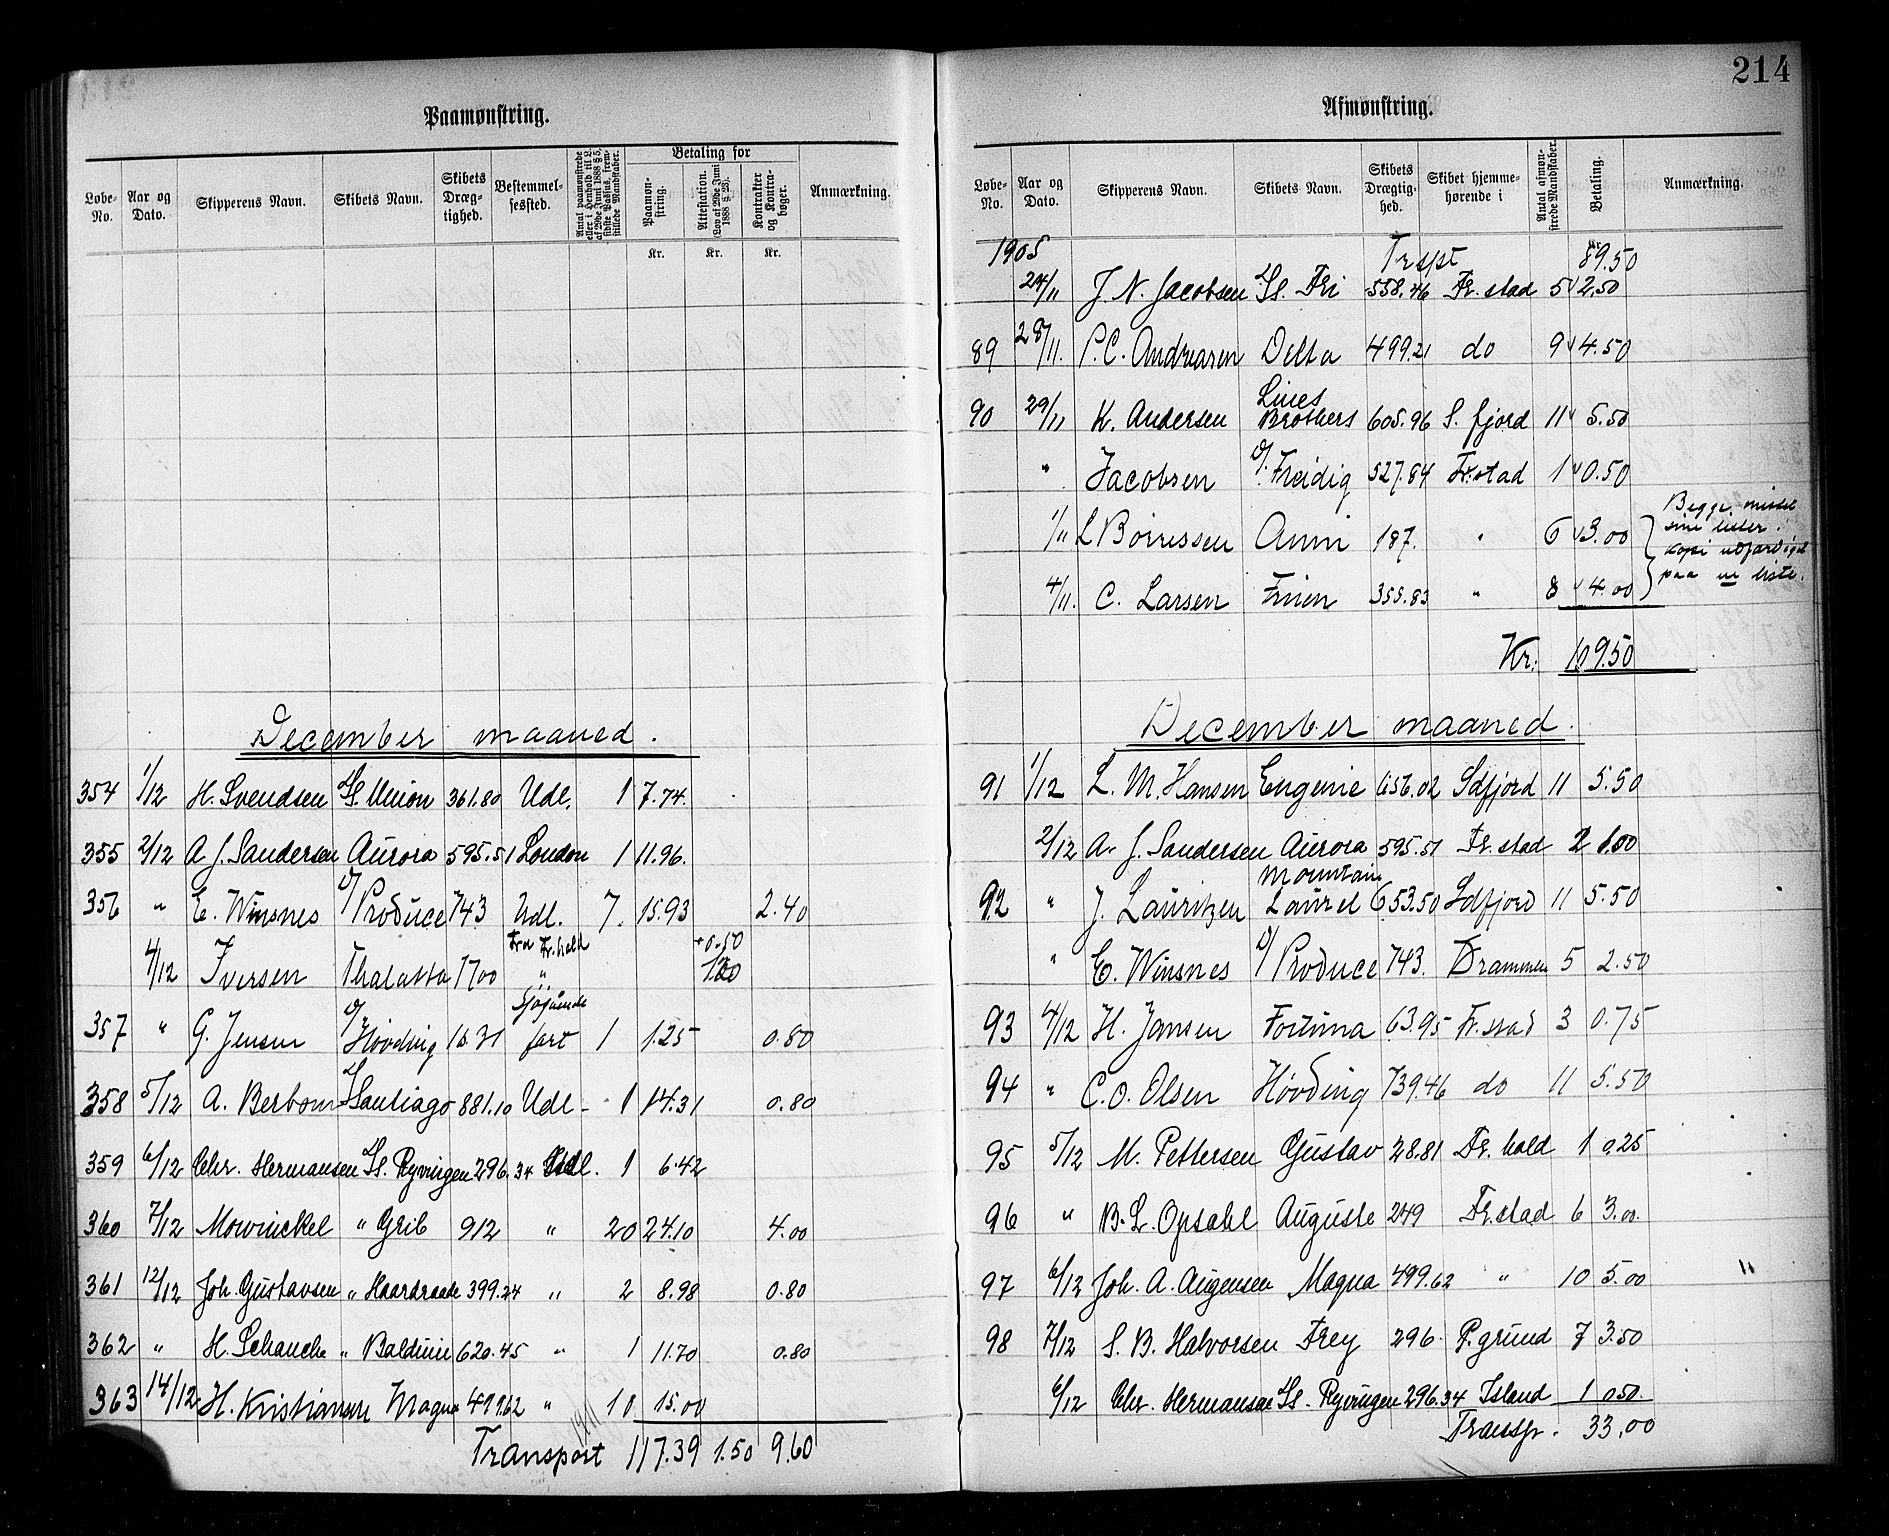 214
Paamønstring.
Løbe-No. Aar og Dato. Skipperens Navn. Skibets Navn. Skibets Dræg-tighed. Bestemmel-sessted. Antal paamønstrede eller i Henhold til L. af 29de Juni 1888 § 5, sidste Passus, frem-stillede Mandskaber. Betaling for Paamøn-string. Attestation. (Lov af 29de Juni 1888 § 23). Kontrakter og Kontra-bøger. Anmærkning.
Kr. Kr. Kr.
December maaned.
354 1/12 H. Svendsen Ss. Union 361.80 Udl. 1 7.74.
355 2/12 A J. Sandersen Aurora 595.51 London 1 11.96.
356 " E. Winsnes D/ Produce 743 Udl. 7. 15.93 2.40
Fra Fr.hald +0.50
4/12 Iversen Thalatta 1700 "
357 " G. Jensen D/ Høvding 16.31 Sjøgaende fart 1 1.25 0.80
358 5/12 A. Berbom Santiago 881.10 Udl - 1 14.31 0.80
359 6/12 Chr. Hermansen Ss. Ryvingen 296.34 Udl. 1 6.42
360 7/12 Mowinckel " Grib 912 " 20 24.10 4.00
361 12/12 Joh. Gustavsen " Haardraade 399.24 " 2 8.98 0.80
362 " H. Schanche " Balduin 620.45 " 1 11.70 0.80
363 14/12 H. Kristiansen Magna 499.62 " 10 15.00
Transport 117.39 1.50 9.60
Afmønstring.
Løbe-No. Aar og Dato. Skipperens Navn. Skibets Navn. Skibets Drægtig-hed. Skibet hjemme-hørende i Antal afmøn-strede Mandskaber. Betaling. Anmærkning.
1905 Trspt 89.50
24/11 J. N. Jacobsen Ss. Fri 558.46 Fr.stad 5 2.50
89 28/11. P. C. Andreasen Delta 499.21 do 9 4.50
90 29/11 K. Andersen Lines Brothers 605.96 S. fjord 11 5.50
" Jacobsen D/. Freidig 527.84 Fr.stad 1 0.50
1/11 L Børresen Anni 187. " 6 3.00 Begge mistet
sine lister.
kopi udfærdiget
4/11. C. Larsen Frien 355.83 " 8 4.00 paa en liste.
Kr. 109.50
December maaned.
91 1/12 L. M. Hansen Eugenie 656.02 Sdfjord 11 5.50
2/12 A. J. Sandersen Aurora 595.51 Fr.stad 2 1.00
92 " J. Lauritzen Mountain Laurel 653.50 Sdfjord 11 5.50
" E. Winsnes D/ Produce 743. Drammen 5 2.50
93 4/12 H. Jansen Fortuna 63.95 Fr.stad 3 0.75
94 " C. O. Olsen Høvding 739.46 do 11 5.50
95 5/12 M. Pettersen Gustav 28.81 Fr.hald 1 0.25
96 " B. L. Opsahl Auguste 249 Fr.stad 6 3.00.
97 6/12 Joh. A. Augensen Magna 499.62 " 10 5.00 "
98 7/12 S. B. Halvorsen Frey 296. P.grund 7 3.50
6/12 Chr. Hermansen Ss. Ryvingen 296.34 Island 1 0.50.
Transp. 33.00